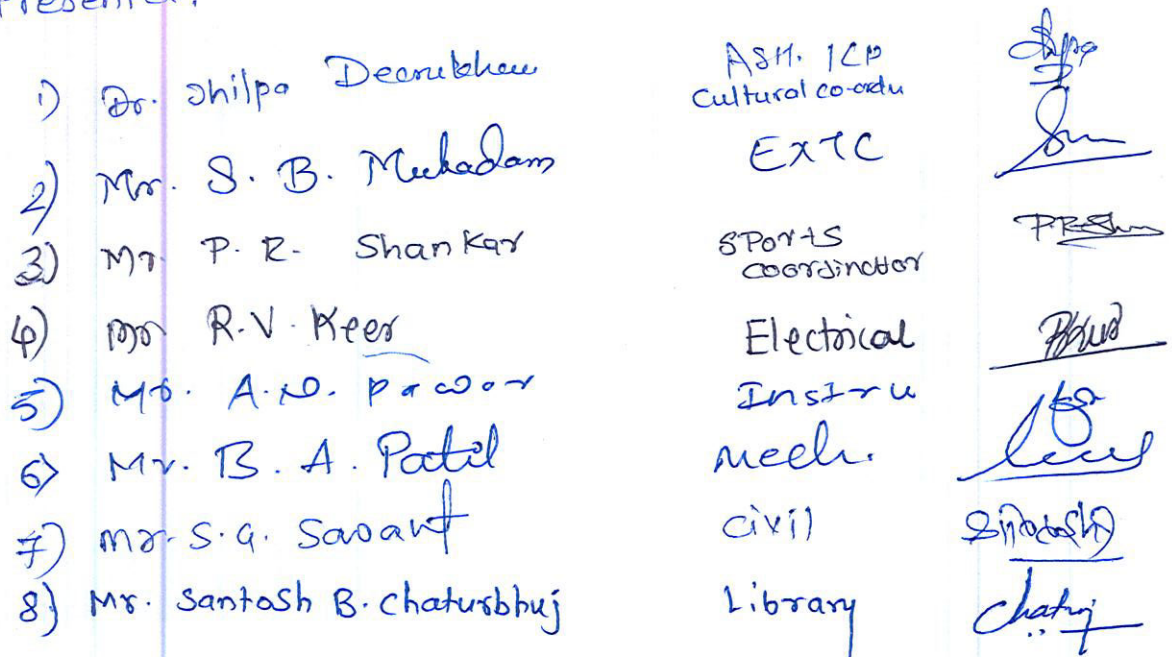 1) Dr. Shilpa Deorukhkar ASH. ICP
Cultural co-ordn
2) Mr. S. B. Mukadam EXTC
3) Mr. P. R. Shankar SPorts
coordinator
4) Mr R.V. Keer Electrical
5) Mr. A.D. Pawar Instru
6) Mr. B. A. Patil Mech.
7) Mr. S.G. Savant Civil
8) Mr. Santosh B. Chaturbhuj Library